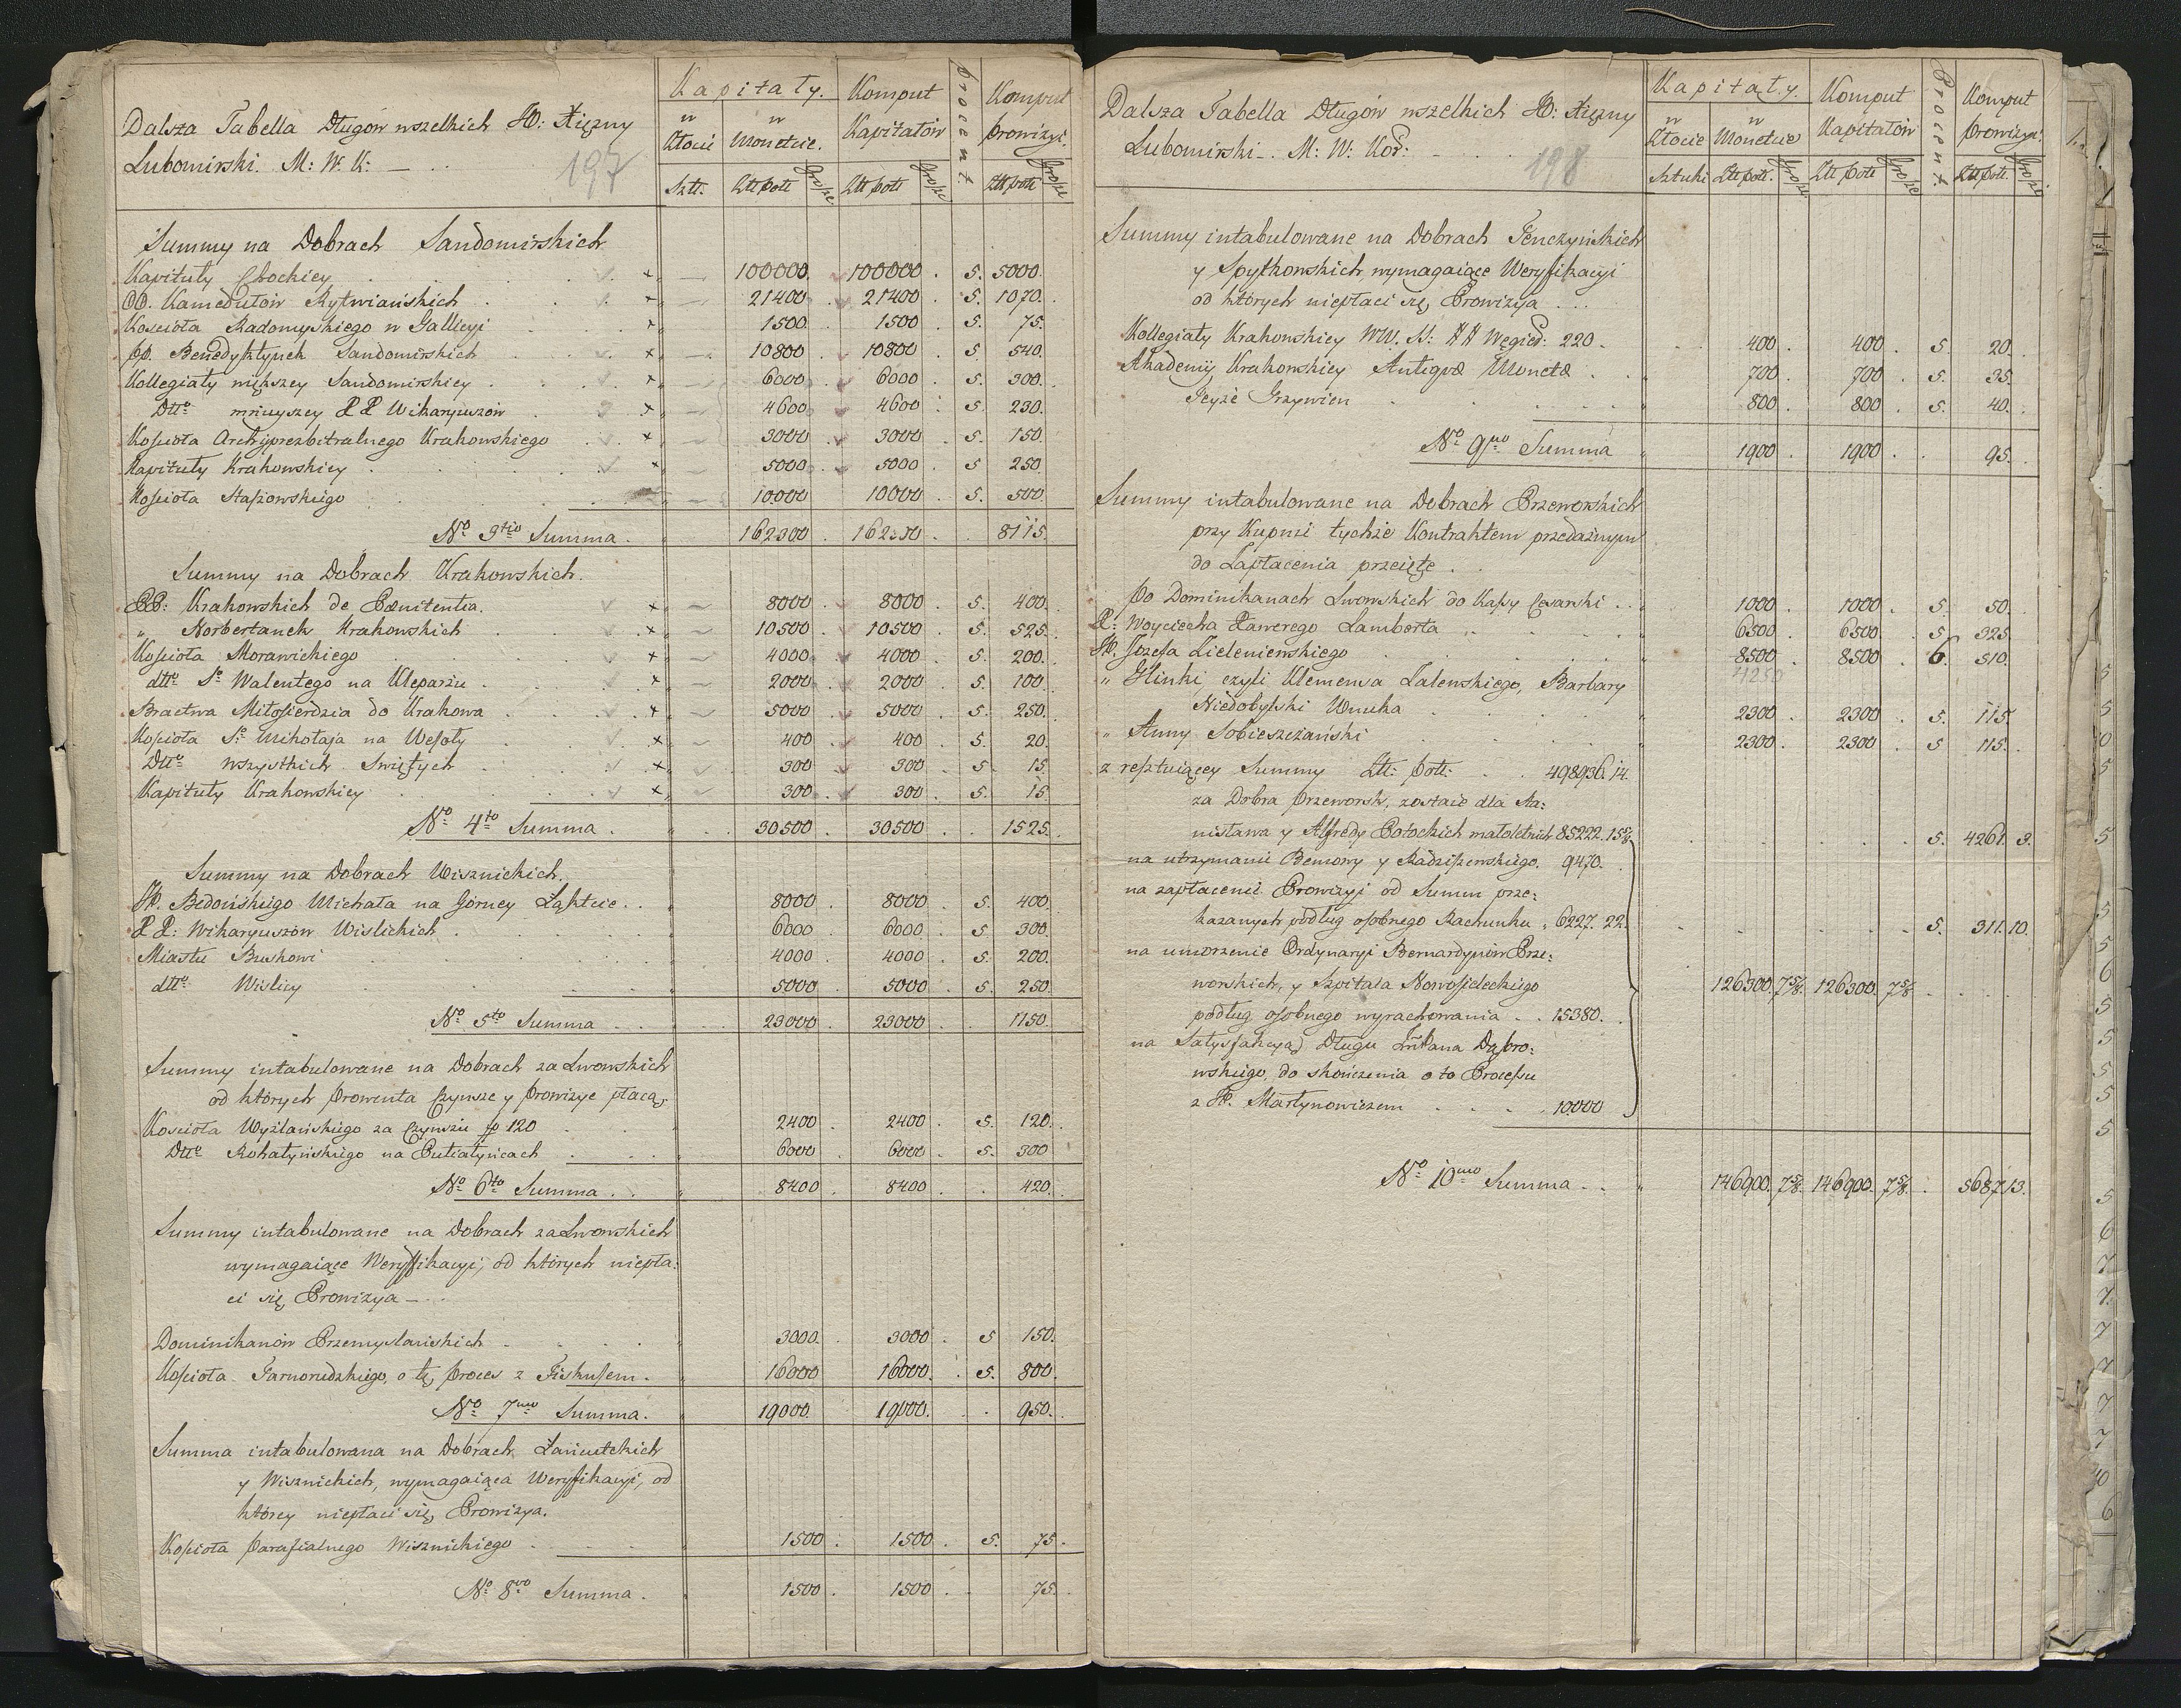 Dalsza Tabella Długów wszelkich JO: Xiężny
Lubomirski. M: W: K: — .
197
Kapitały. Komput Procent. Komput
w w Kapitałów prowizyi.
Złocie Monetcie.
Sztt. Złł poll grosze Złł poll grosze Złł poll grosze
Summy na Dobrach Sandomirskich
Kapituły Płockiey 100000. 100000. 5. 5000.
OO. Kamedułów Rytwiańskich 21400. 21400. 5. 1070.
Kościoła Radomyskiego w Gallicyi 1500 1500. 5. 75.
PP. Benedyktynek Sandomirskich 10800. 10800. 5. 540.
Kollegiaty większey Sandomirskiey 6000. 6000. 5. 300.
Dtto mnieyszey XX Wikaryuszów 4600. 4600. 5. 230.
Kościoła Archyprezbitralnego Krakowskiego 3000. 3000. 5. 150.
Kapituły Krakowskiey 5000. 5000. 5 250.
Kościoła Staszowskiego 10000 10000. 5. 500.
No 3tio Summa. 162300. 162300. 8115.
Summy na Dobrach Krakowskich.
PP: Krakowskich de Pœnitentia. 8000. 8000. 5. 400.
„ Norbertanek Krakowskich 10500. 10500. 5. 525.
Kościoła Morawickiego 4000. 4000. 5. 200.
dtto So Walentego na Kleparzu 2000. 2000. 5. 100.
Bractwa Miłosierdzia do Krakowa 5000. 5000. 5. 250.
Kościoła So Mikołaja na Wesoły 400. 400. 5. 20.
Dtto Wszystkich Swiętych 300. 300. 5. 15.
Kapituły Krakowskiey 300. 300. 5. 15.
No 4to Summa. 30500. 30500. 1525.
Summy na Dobrach Wisznickich.
JP. Bedońskiego Michała na Górney Łąkcie. 8000. 8000. 5. 400.
XX: Wikaryuszów Wislickich 6000. 6000. 5. 300.
Miastu Buskowi 4000. 4000. 5. 200.
dtto Wislicy 5000. 5000. 5. 250.
No 5to Summa 23000. 23000. 1150.
Summy intabulowane na Dobrach zaLwowskich
od których Prowenta Czynsze y prowizye płacą,
Kościoła Wyżlańskiego za Czynszu fp 120 2400. 2400. 5. 120.
Dtto Rohatyńskiego na Putiatyńcach 6000. 6000. 5. 300
No 6to Summa. 8400. 8400. 420.
Summy intabulowane na Dobrach zaLwowskich
wymagaiące Weryffikacyi, od których niepła:
ci się Prowizya —
Dominikanów Przemyslańskich 3000. 3000. 5 150.
Kościoła Tarnorudzkiego, o tę proces z Fiskusem. 16000 16000. 5. 800.
No 7mo Summa. 19000. 19000. 950.
Summa intabulowana na Dobrach Łańcutskich
y Wisznickich, wymagaiąca Weryfikacyi, od
którey niepłaci się Prowizya.
Kościoła parafialnego Wisznickiego 1500. 1500. 5. 75.
No 8vo Summa. 1500. 1500. 75.
Dalsza Tabella Długów wszelkich JO: Xiężny
Lubomirski. M: W: Kor:
198
Kapitały. Komput Procent. Komput
w w Kapitałów prowizyi.
Złocie Monetcie
Sztuki Złł poll. grosze Złł poll grosze Złł poll. grosze
Summy intabulowane na Dobrach Tenczyńskich
y Spytkowskich wymagaiące Weryfikacyi
od których niepłaci się Prowizya
Kollegiaty Krakowskiey WW. SS: XX Węgier: 220. 400. 400. 5. 20.
Akademij Krakowskiey Antiqvæ Monetæ 700. 700. 5. 35.
Teyże Grzywien 800. 800. 5. 40.
No 9no Summa 1900. 1900. 95.
Summy intabulowane na Dobrach Przeworskich
przy Kupnie tychże Kontraktem przedażnym
do Zapłacenia przeięte.
Po Dominikanach Lwowskich do Kassy Cesarski 1000. 1000. 5. 50.
X: Woyciecha Xawerego Lamberta 6500. 6500. 5. 325.
JP. Jozefa Zieleniewskiego 8500. 8500. 6. 510.
4250
„ Hlinki, czyli Klemensa Zalewskiego, Barbary
Niedobylski Wnuka 2300. 2300. 5. 115.
„ Anny Sobieszczański 2300. 2300. 5 115.
z resztuiącey Summy Złł: poll: 498936. 14.
za Dobra Przeworsk, zostaie dla Sta:
nisława y Alfreda Potockich małoletnich 85222. 15 5/8 5. 4261. 3.
na utrzymanie Remowy y Radziszewskiego. 9470.
na zapłacenie Prowizyi od Summ prze:
kazanych podług osobnego Rachunku „ 6227. 22. 5. 311. 10.
na umorzenie Ordynaryi Bernardynów Prze:
worskich, y Szpitala Nowosieleckiego 126300. 7 5/8. 126300. 7 5/8.
podług osobnego wyrachowania 15380.
na Satysfakcyą Długu Jmć Pana Dąbro:
wskiego, do skończenia o to Processu
z JP. Martynowiczem 10000
No 10mo Summa 146900. 7 5/8. 146900. 7 5/8. 5687. 13.